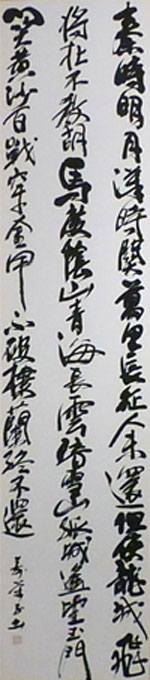 秦時明月漢時關萬里長征人未還但使龍城飛
將在不教胡馬度陰山青海長雲暗雪山孤城遙望玉門
關黃沙百戰穿金甲不破樓蘭終不還